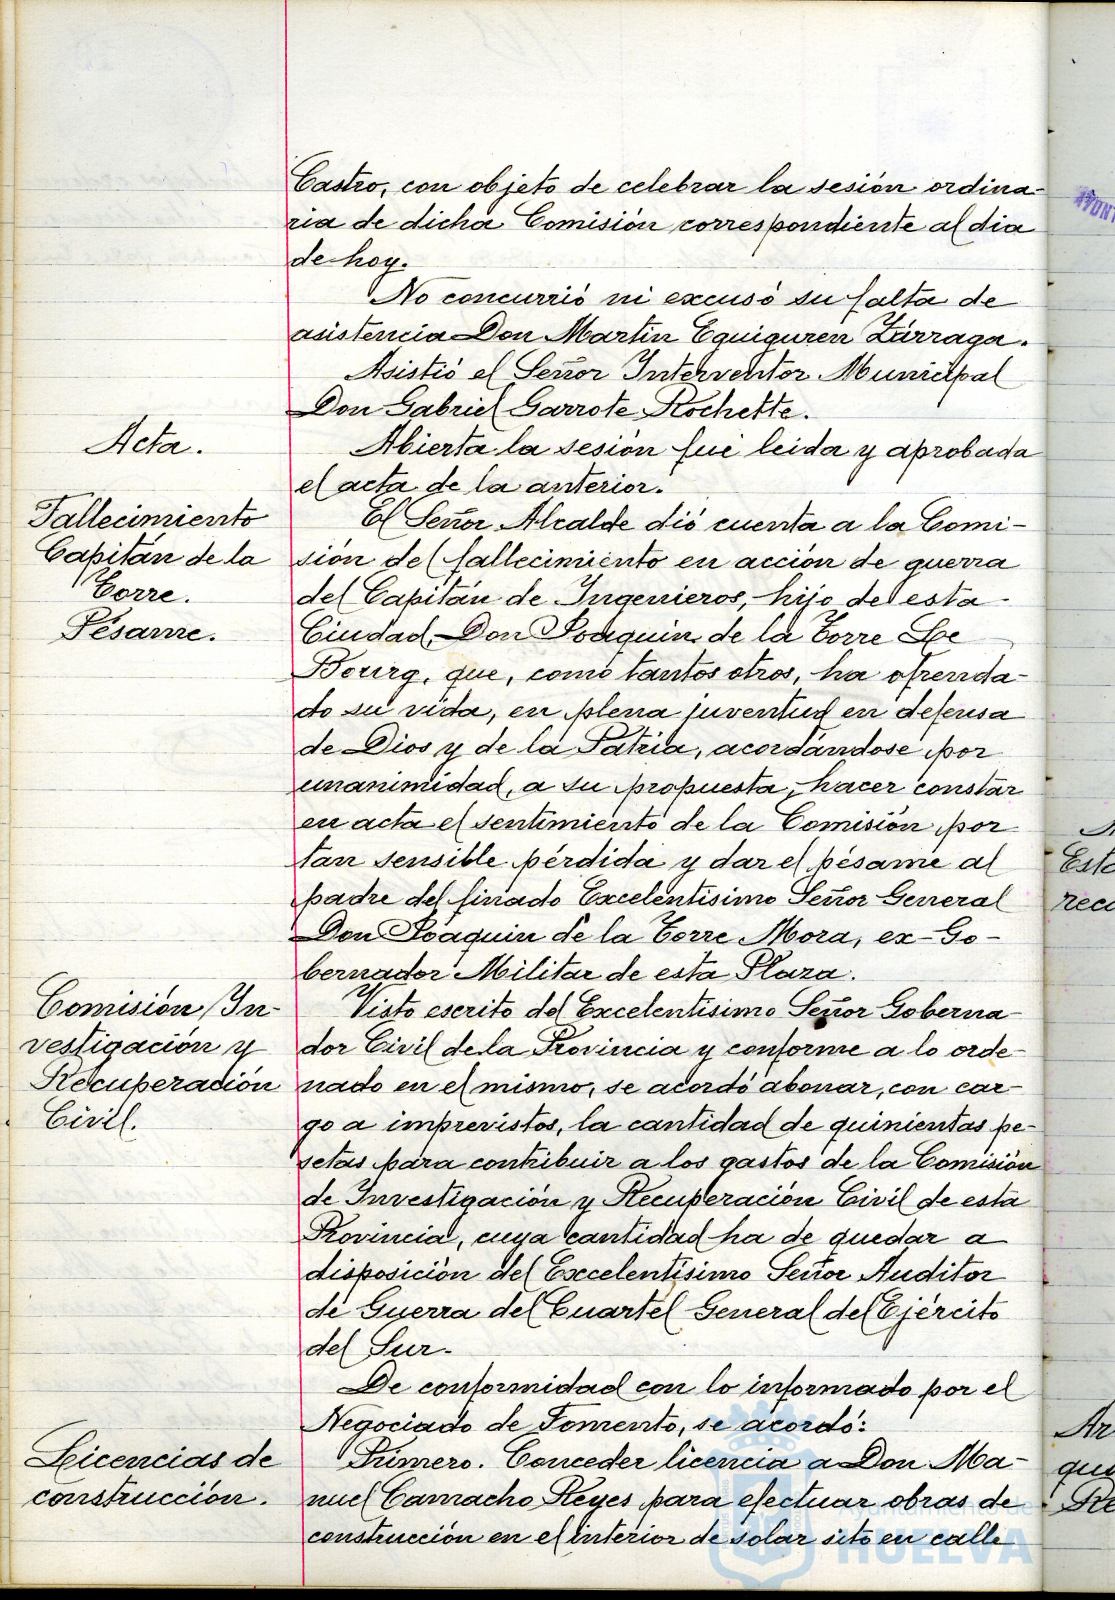 Castro, con objeto de celebrar la sesión ordina-
ria de dicha Comisión correspondiente al dia
de hoy.
No concurrió ni excusó su falta de
asistencia Don Martín Eguiguren Zárraga.
Asistió el Señor Interventor Municipal
Don Gabriel Garrote Rochette.
Acta.
Abierta la sesión fué leida y aprobada
el acta de la anterior.
Fallecimiento
Capitán de la
Torre.
Pésame.
El Señor Alcalde dió cuenta a la Comi-
sión del fallecimiento en acción de guerra
del Capitán de Ingenieros, hijo de esta
Ciudad, Don Joaquin de la Torre Le
Bourg, que, como tantos otros, ha ofrenda-
do su vida, en plena juventud en defensa
de Dios y de la Patria, acordándose por
unanimidad, a su propuesta, hacer constar
en acta el sentimiento de la Comisión por
tan sensible pérdida y dar el pésame al
padre del finado Excelentísimo Señor General
Don Joaquin de la Torre Mora, ex-Go-
bernador Militar de esta Plaza.
Comisión In-
vestigación y
Recuperación
Civil.
Visto escrito del Excelentísimo Señor Goberna-
dor Civil de la Provincia y conforme a lo orde-
nado en el mismo, se acordó abonar, con car-
go a imprevistos, la cantidad de quinientas pe-
setas para contribuir a los gastos de la Comisión
de Investigación y Recuperación Civil de esta
Provincia, cuya cantidad ha de quedar a
disposición del Excelentísimo Señor Auditor
de Guerra del Cuartel General del Ejército
del Sur.
De conformidad con lo informado por el
Negociado de Fomento, se acordó:
Licencias de
construcción.
Primero. Conceder licencia a Don Ma-
nuel Camacho Reyes para efectuar obras de
construcción en el interior de solar sito en calle
Ayuntamiento de
HUELVA